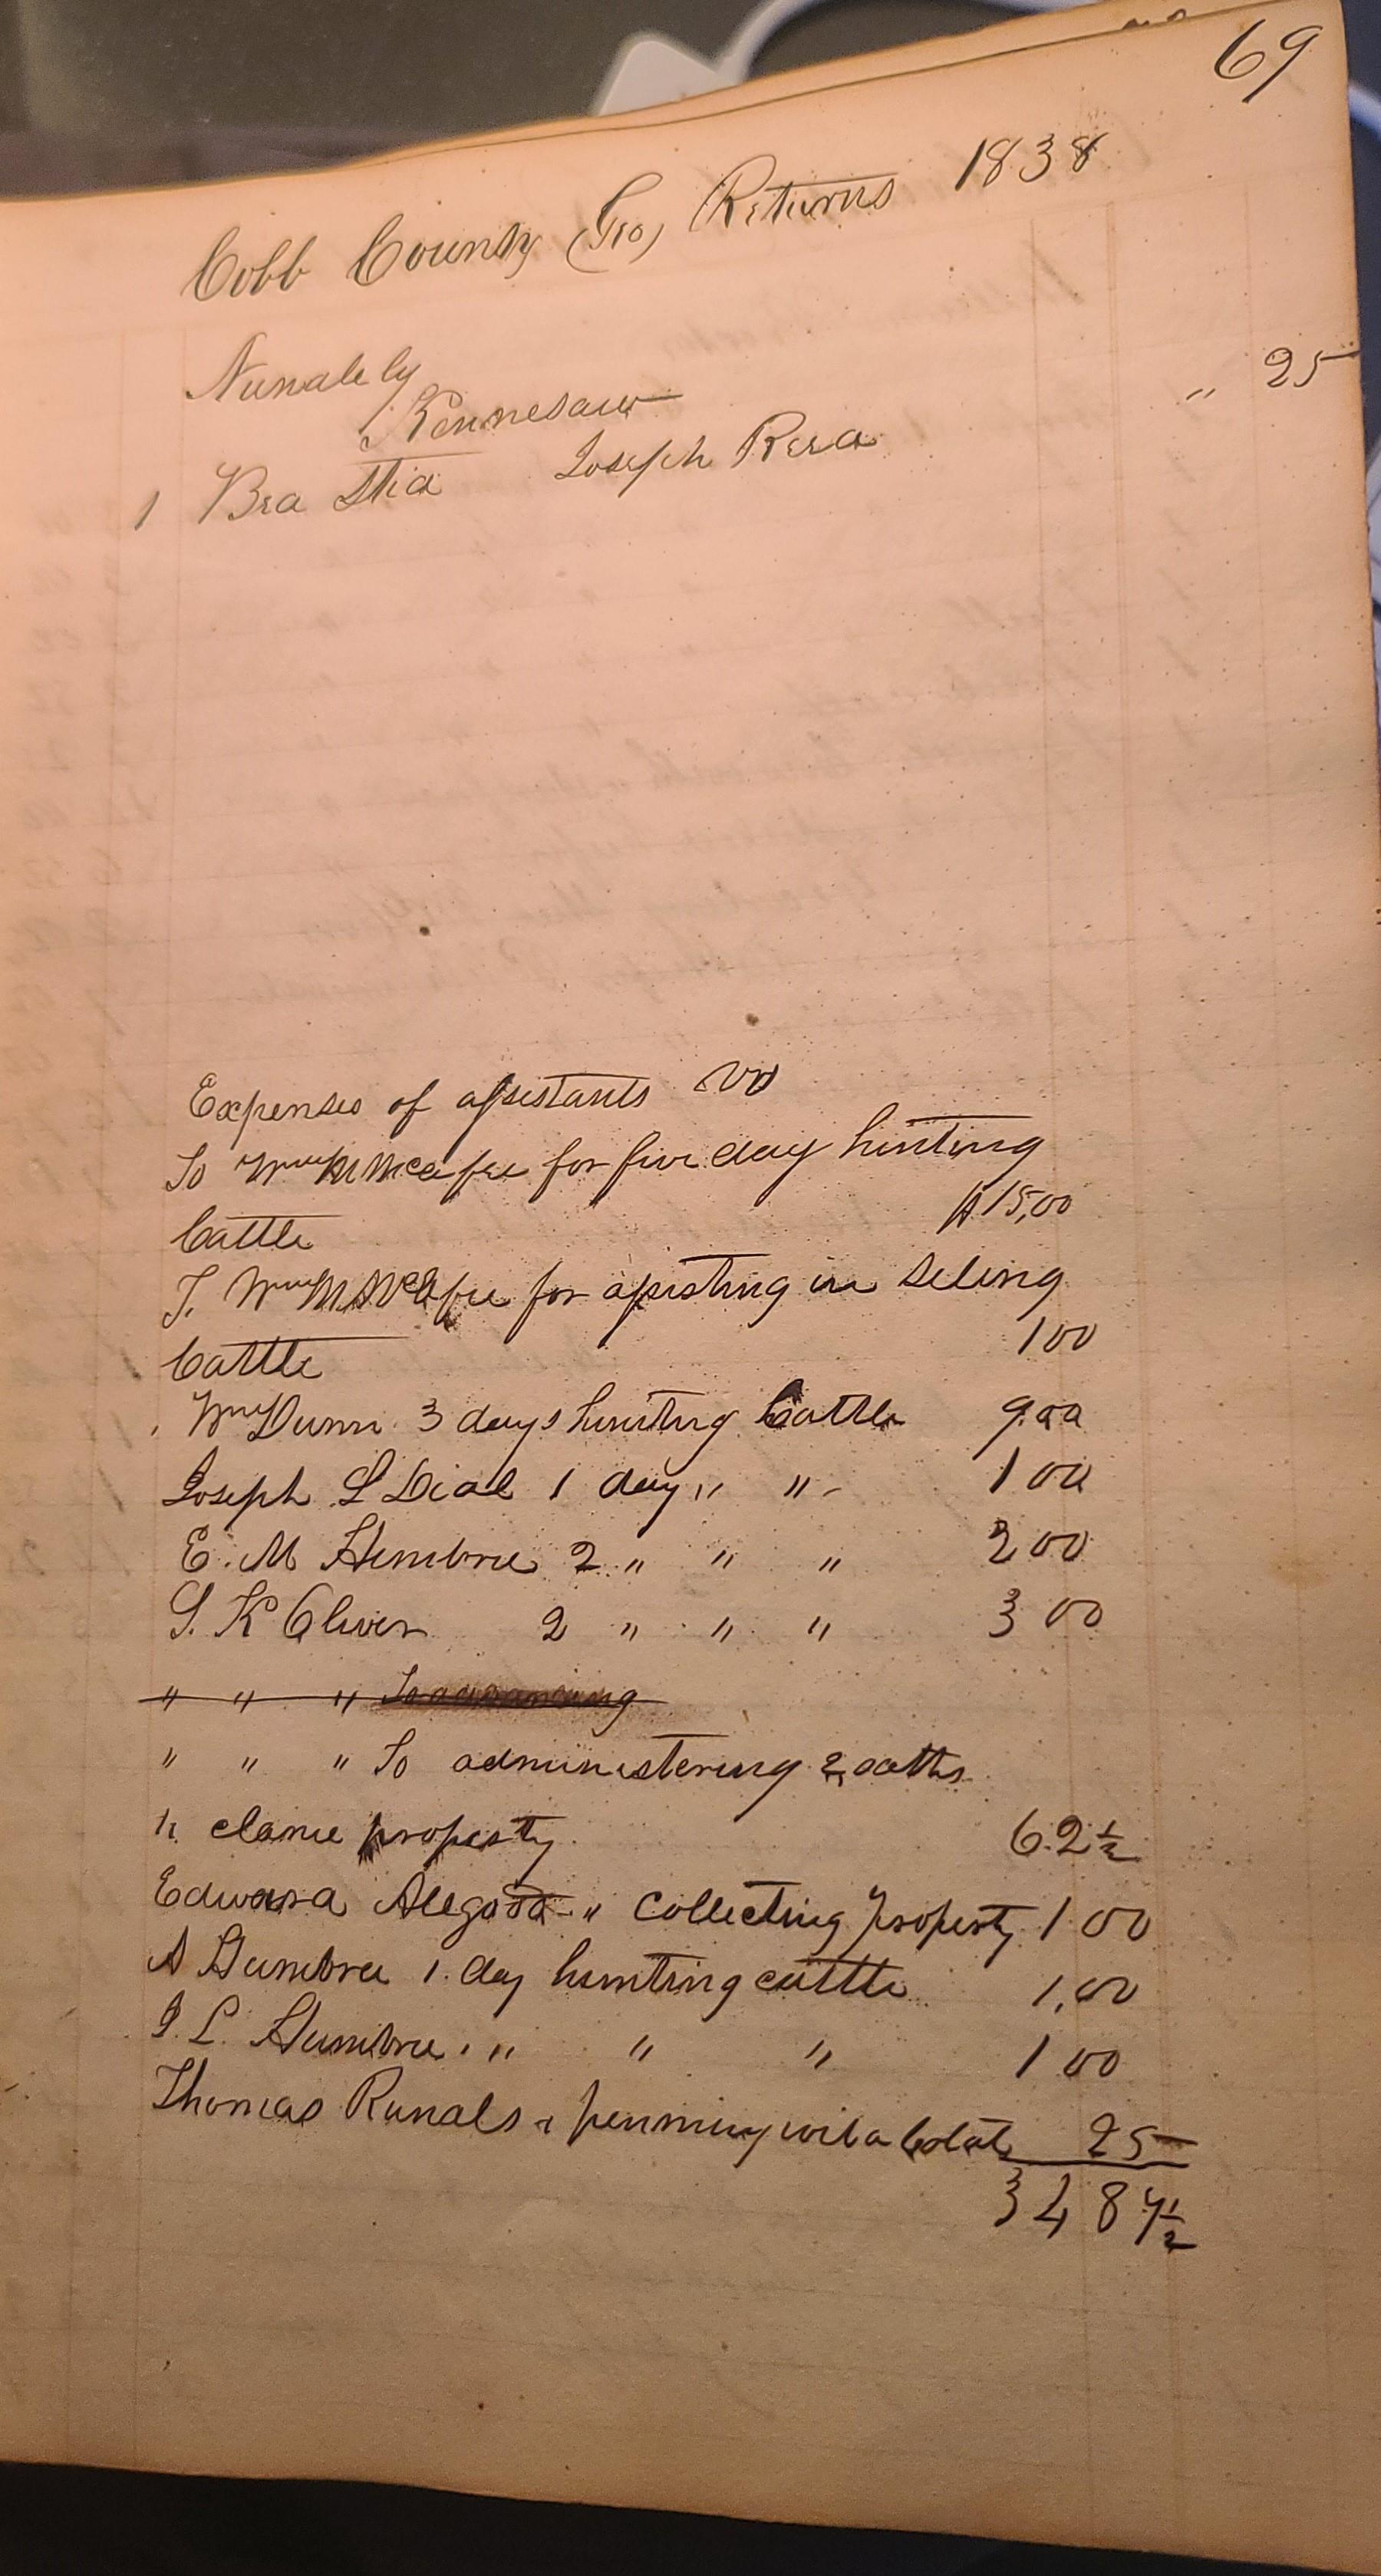 69
Cobb County (Geo) Returns 1838
Nunalely " 25
Kennesaw
1 Bed Sted Joseph Reed
Expenses of assistants
To Wm M McAfee for five day hunting
Cattle $15,00
T. Wm M McAfee for assisting in Seling
Cattle 1 00
Wm Dunn 3 days hunting Cattle 9.00
Joseph L Dial 1 day " " 1 00
E. M Hembree 2 " " " 2 00
S. K Oliver 2 " " " 3 00
" " " To advancing
" " " To administering 2 oaths
" clame property 62 1/2
Edward Alegood " Collecting Property 1 00
A Hembree 1 day hunting cattle 1,00
J. L. Hembree " " " 1 00
Thomas Runals " penning 25
34 87 1/2